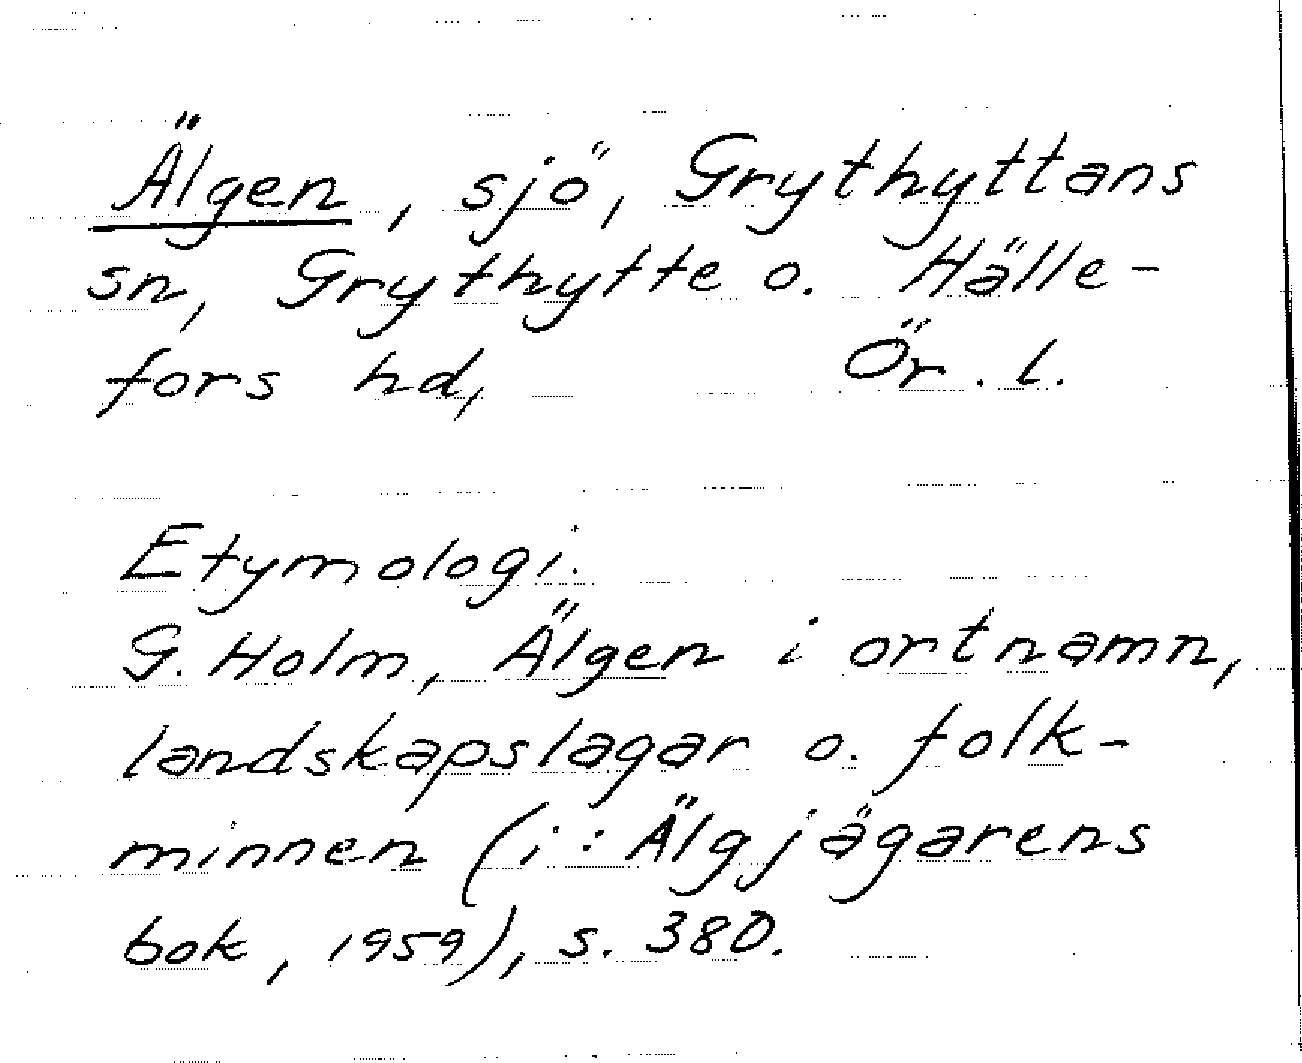 Älgen, sjö, Grythyttans
sn, Grythytte o. Hälle-
fors hd, Ör. l.
Etymologi.
G. Holm, Älgen i ortnamn,
landskapslagar o. folk-
minnen (i: Älgjägarens
bok, 1959), s. 380.